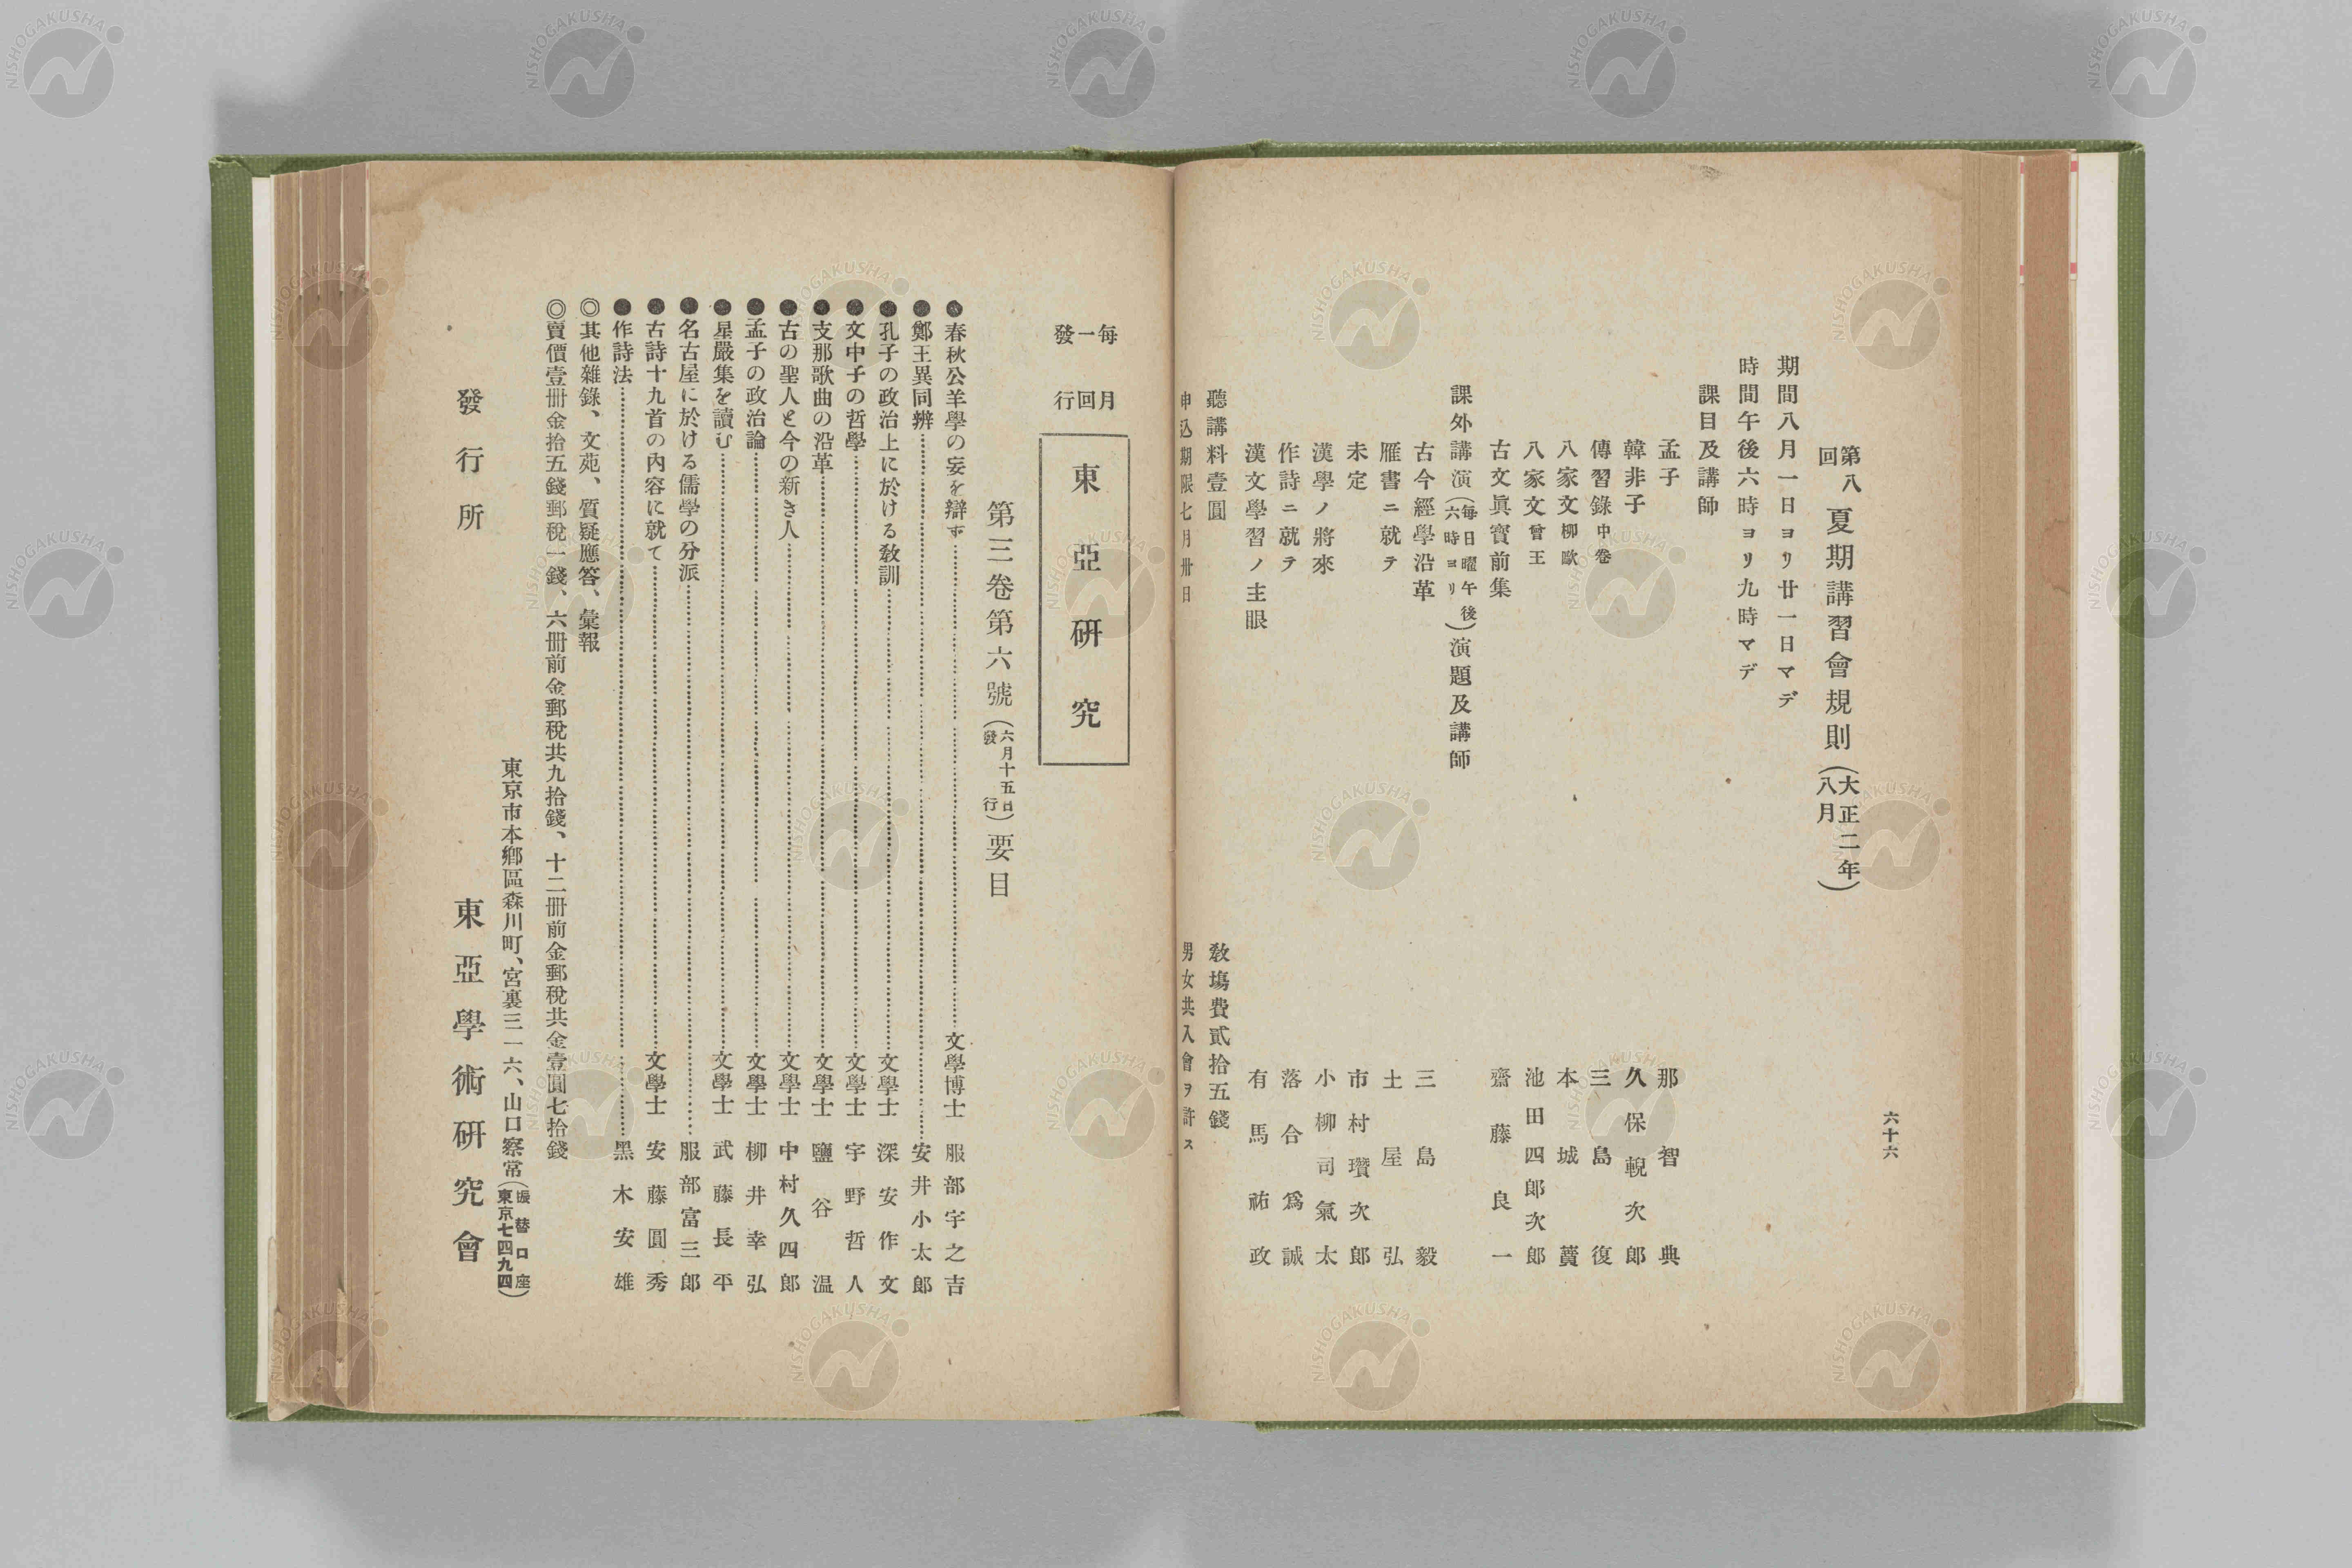 六十六
第八回 夏期講習會規則(大正二年八月)
期間八月一日ヨリ廿一日マデ
時間午後六時ヨリ九時マデ
課目及講師
孟子 那智典
韓非子 久保輗次郎
傳習錄中卷 三島復
八家文柳歐 本城蕡
八家文曾王 池田四郎次郎
古文眞寳前集 齋藤良一
課外講演(毎日曜午後六時ヨリ)演題及講師
古今經學沿革 三島毅
雁書ニ就テ 土屋弘
未定 市村瓚次郎
漢學ノ將來 小柳司氣太
作詩ニ就テ 落合爲誠
漢文學習ノ主眼 有馬祐政
聽講料壹圓 敎塲費貳拾五錢
申込期限七月卅日 男女共入會ヲ許ス
毎月一回發行
東亞硏究
第三卷第六號(六月十五日發行)要目
●春秋公羊學の妄を辯ず 文學博士 服部宇之吉
●鄭王異同辨 安井小太郎
●孔子の政治上に於ける敎訓 文學士 深安作文
●文中子の哲學 文學士 宇野哲人
●支那歌曲の沿革 文學士 鹽谷温
●古の聖人と今の新き人 文學士 中村久四郎
●孟子の政治論 文學士 柳井幸弘
●星嚴集を讀む 文學士 武藤長平
●名古屋に於ける儒學の分派 服部富三郎
●古詩十九首の內容に就て 文學士 安藤圓秀
●作詩法 黑木安雄
◎其他雜錄、文苑、質疑應答、彙報
◎賣價壹冊金拾五錢郵稅一錢、六冊前金郵稅共九拾錢、十二冊前金郵稅共金壹圓七拾錢
東京市本鄕區森川町、宮裏三一六、山口察常(振替口座東京七四九四)
發行所 東亞學術硏究會
NISHOGAKUSHA